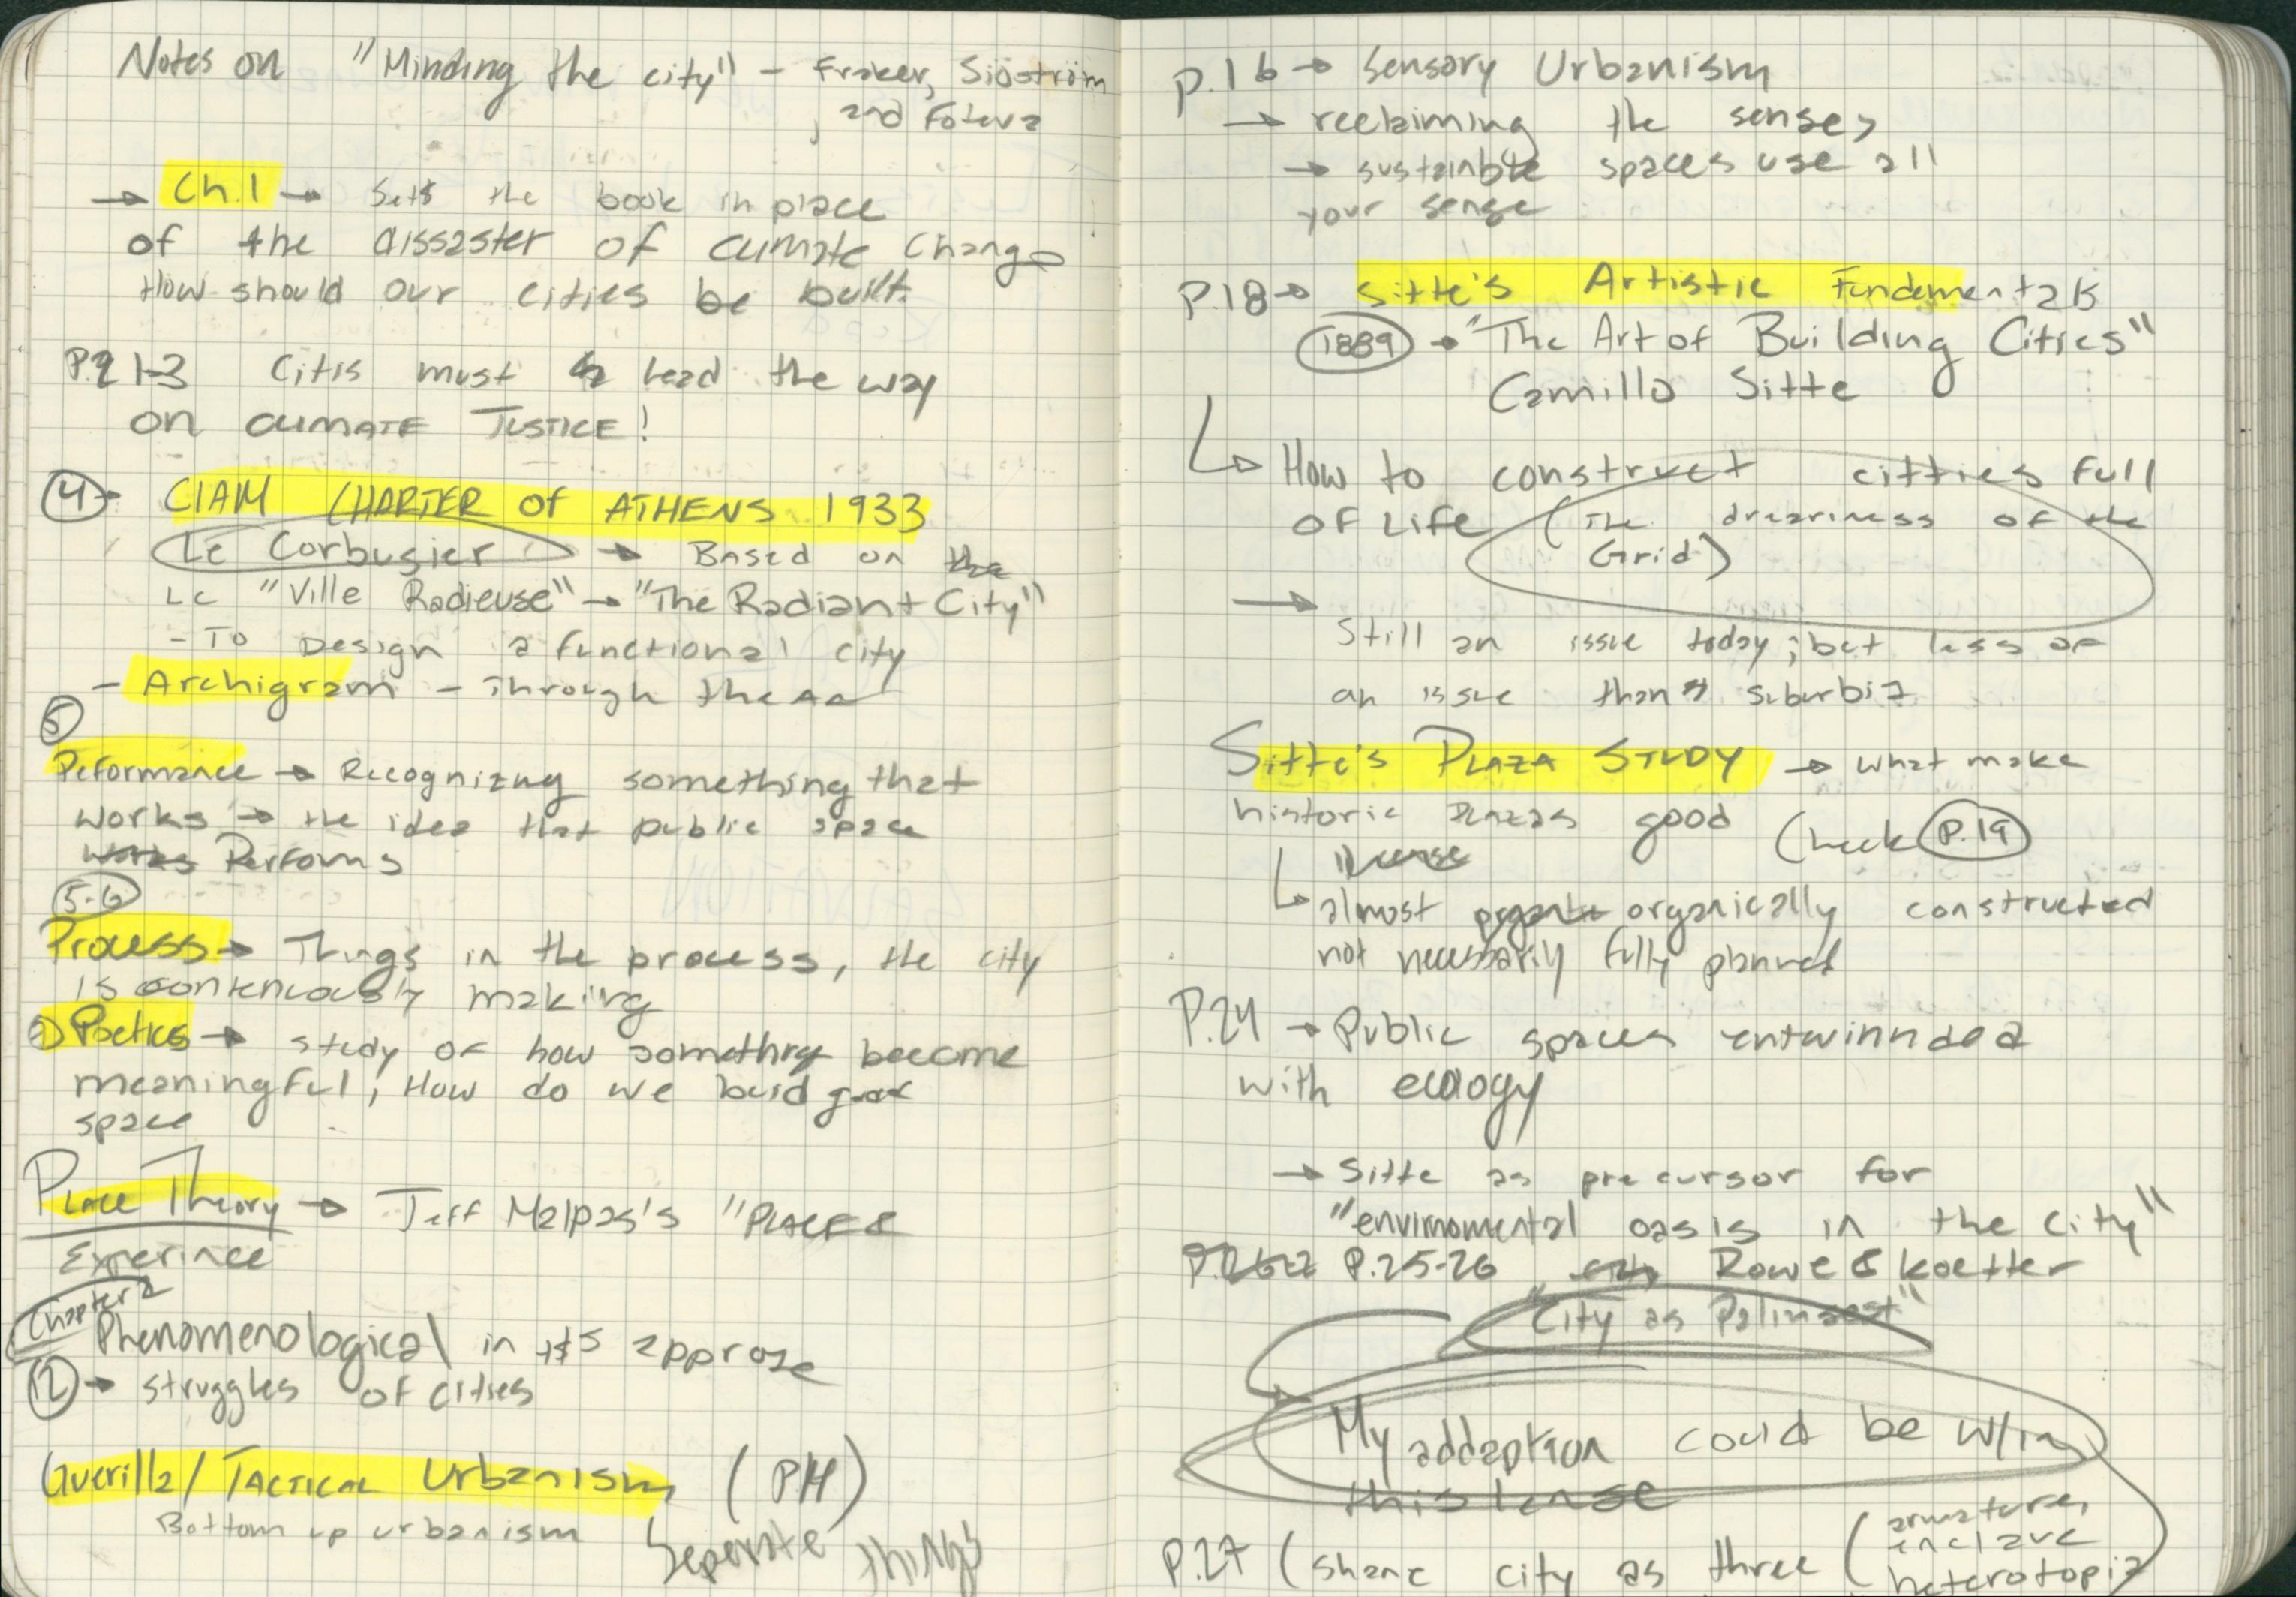 Notes on "Minding the city" - Fraker, Sjöström
and Foteva
→ Ch.1 → Sets the book in place
of the dissaster of climate change
How should our cities be built.
P. 1-3 Citis must lead the way
on CLIMATE JUSTICE!
④ → CIAM CHARTER OF ATHENS 1933
Le Corbusier → Based on the
Le "Ville Radieuse" → "The Radiant City"
- To Design a functional city
- Archigram - Through the AA
⑤
Peformance → Recognizing something that
works → the idea that public space
works Performs
5-6
Process → Things in the process, the city
is conteniously making
Poetics → study of how something become
meaningful, How do we build good
space
Place Theory → Jeff Malpas's "PLACE &
Experince
Chapter 2
Phenomenological in its approse
⑫ → struggles of cities
Guerilla/ TACTICAL Urbanism (PH)
Bottom up urbanism Seperate things
P.16 → Sensory Urbanism
→ reclaiming the senses
→ sustainble spaces use all
your sense
P.18 → Sitte's Artistic Fundementals
1889 → "The Art of Building Cities"
Camillo Sitte
↳ How to construct citties full
of Life (The dreariness of the
Grid)
→ Still an issue today; but less of
an issue than suburbia
Sitte's PLAZA STUDY → what make
historic plazas good Check p.19
↳ almost organic organically constructed
not necessarily fully planned
P.24 → Public spaces entwinnded
with ecology
→ Sitte as precursor for
"enviromental oasis in the city"
P.25-26 Rowe & Koetter
"City as Palimsest"
My addaption could be w/in
this lense
P.27 (Shane city as three (armature,
enclave
heterotopia